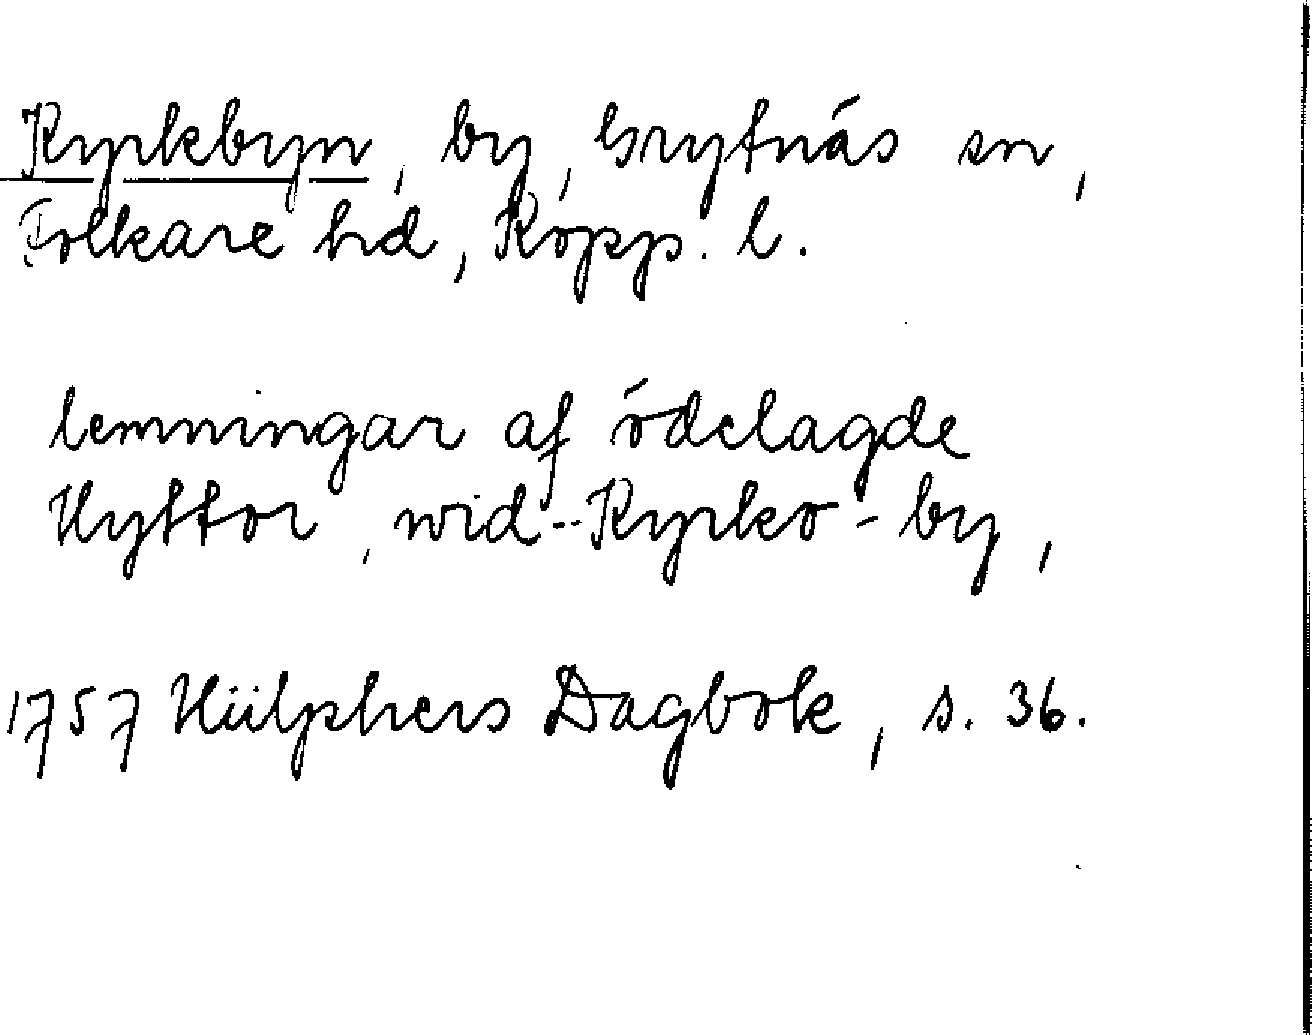 Kyrkbyn, by, Grytnäs sn,
Folkare hd, Kopp. l.
lemningar af ödelagde
Hyttor, wid--Kyrko-by,
1757 Hülphers Dagbok, s. 36.